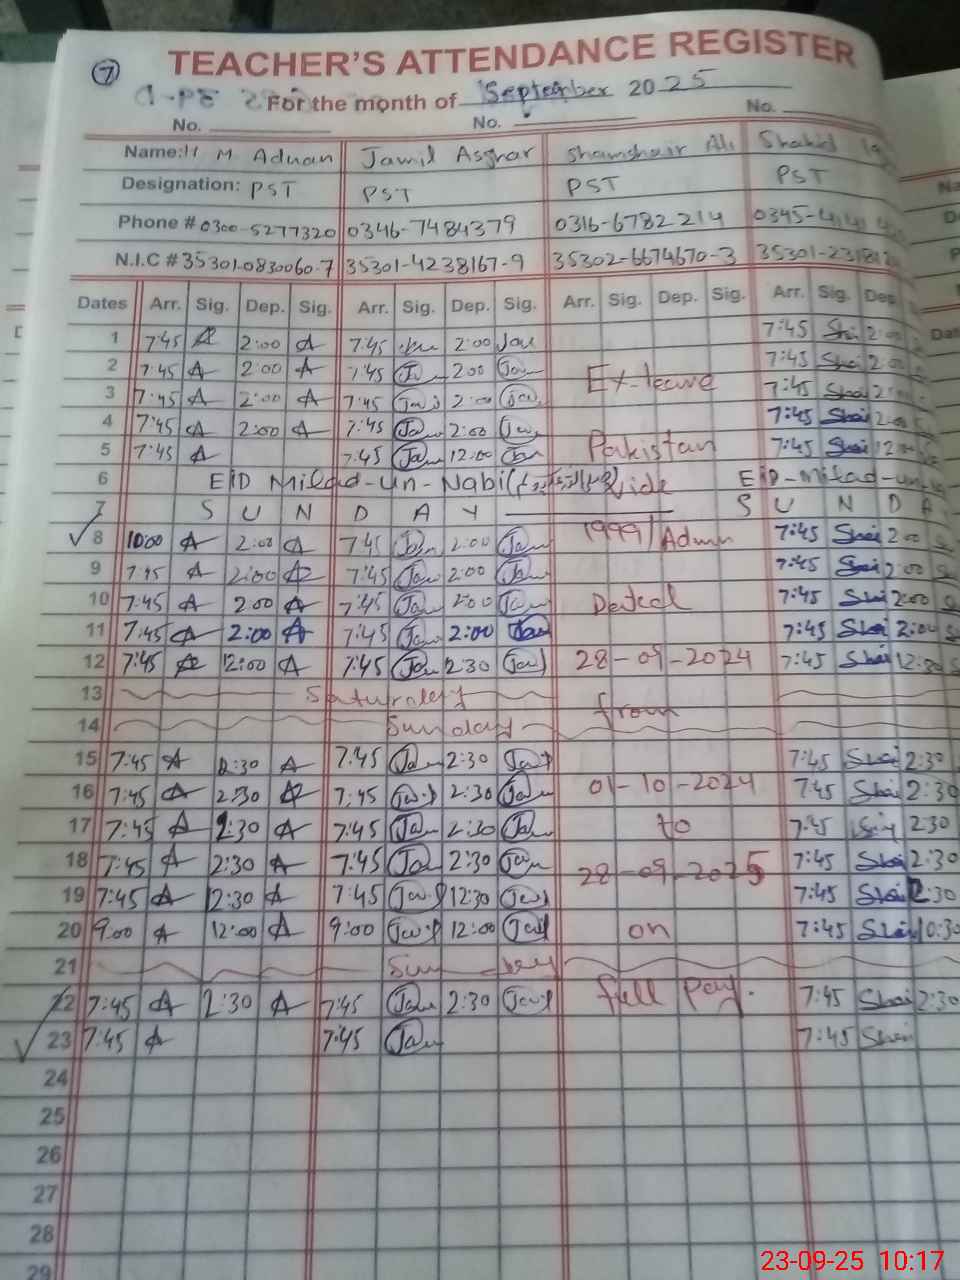 7
TEACHER'S ATTENDANCE REGISTER
For the month of September 2025
No. No. No.
Name: M Adnan Jamil Asghar Shamshair Ali Shahid
Designation: PST PST PST PST
Phone # 0300-5277320 0346-7484379 0316-6782214 0345-
N.I.C # 35301-0830060-7 35301-4238167-9 35302-6674670-3 35301-
Dates Arr. Sig. Dep. Sig. Arr. Sig. Dep. Sig. Arr. Sig. Dep. Sig. Arr. Sig. Dep
1 7:45 A 2:00 A 7:45 2:00 Jau 7:45 Shai 2:00
2 7:45 A 2:00 A 7:45 Ja 2:00 Jau Ex-leave 7:45 Shai 2:00
3 7:45 A 2:00 A 7:45 Jau 2:00 Jau 7:45 Shai 2:00
4 7:45 A 2:00 A 7:45 Jau 2:00 Jau 7:45 Shai 2:00
5 7:45 A 7:45 Jau 12:00 Jau Pakistan 7:45 Shai 12:00
6 EID Milad-un-Nabi vide EID-milad-un
7 S U N D A Y S U N D A
8 10:00 A 2:00 A 7:45 Jau 2:00 Jau 1999/Admn 7:45 Shai 2:00
9 7:45 A 2:00 A 7:45 Jau 2:00 Jau 7:45 Shai 2:00
10 7:45 A 2:00 A 7:45 Jau 2:00 Jau Dated 7:45 Shai 2:00
11 7:45 A 2:00 A 7:45 Jau 2:00 Jau 7:45 Shai 2:00
12 7:45 A 12:00 A 7:45 Jau 2:30 Jau 28-09-2024 7:45 Shai 12:30
13 Saturday
from
14 Sunday
15 7:45 A 2:30 A 7:45 Jau 2:30 Jau 7:45 Shai 2:30
16 7:45 A 2:30 A 7:45 Jau 2:30 Jau 01-10-2024 7:45 Shai 2:30
17 7:45 A 2:30 A 7:45 Jau 2:30 Jau to 7:45 2:30
18 7:45 A 2:30 A 7:45 Jau 2:30 Jau 28-09-2025 7:45 Shai 2:30
19 7:45 A 12:30 A 7:45 Jau 12:30 Jau 7:45 Shai 2:30
20 9:00 A 12:00 A 9:00 Jau 12:00 Jau on 7:45 Shai 10:30
21 Sunday
22 7:45 A 2:30 A 7:45 Jau 2:30 Jau full pay. 7:45 Shai 2:30
23 7:45 A 7:45 Jau 7:45 Shai
24
25
26
27
28
29
23-09-25 10:17